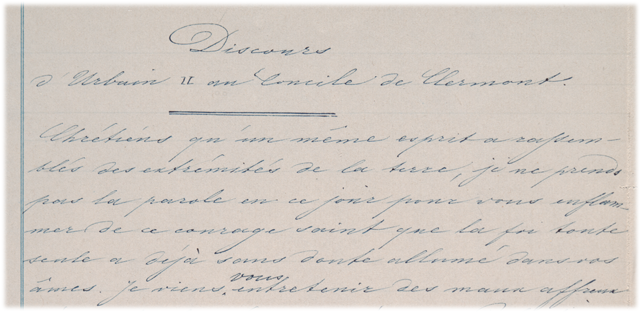 Discours
d'Urbain II au Concile de Clermont.
Chrétiens qu'un même esprit a rassem-
blés des extrémités de la terre, je ne prends
pas la parole en ce jour pour vous enflam-
mer de ce courage saint que la foi toute
seule a déjà sans doute allumé dans vos
vous
âmes. Je viens entretenir des maux affreux